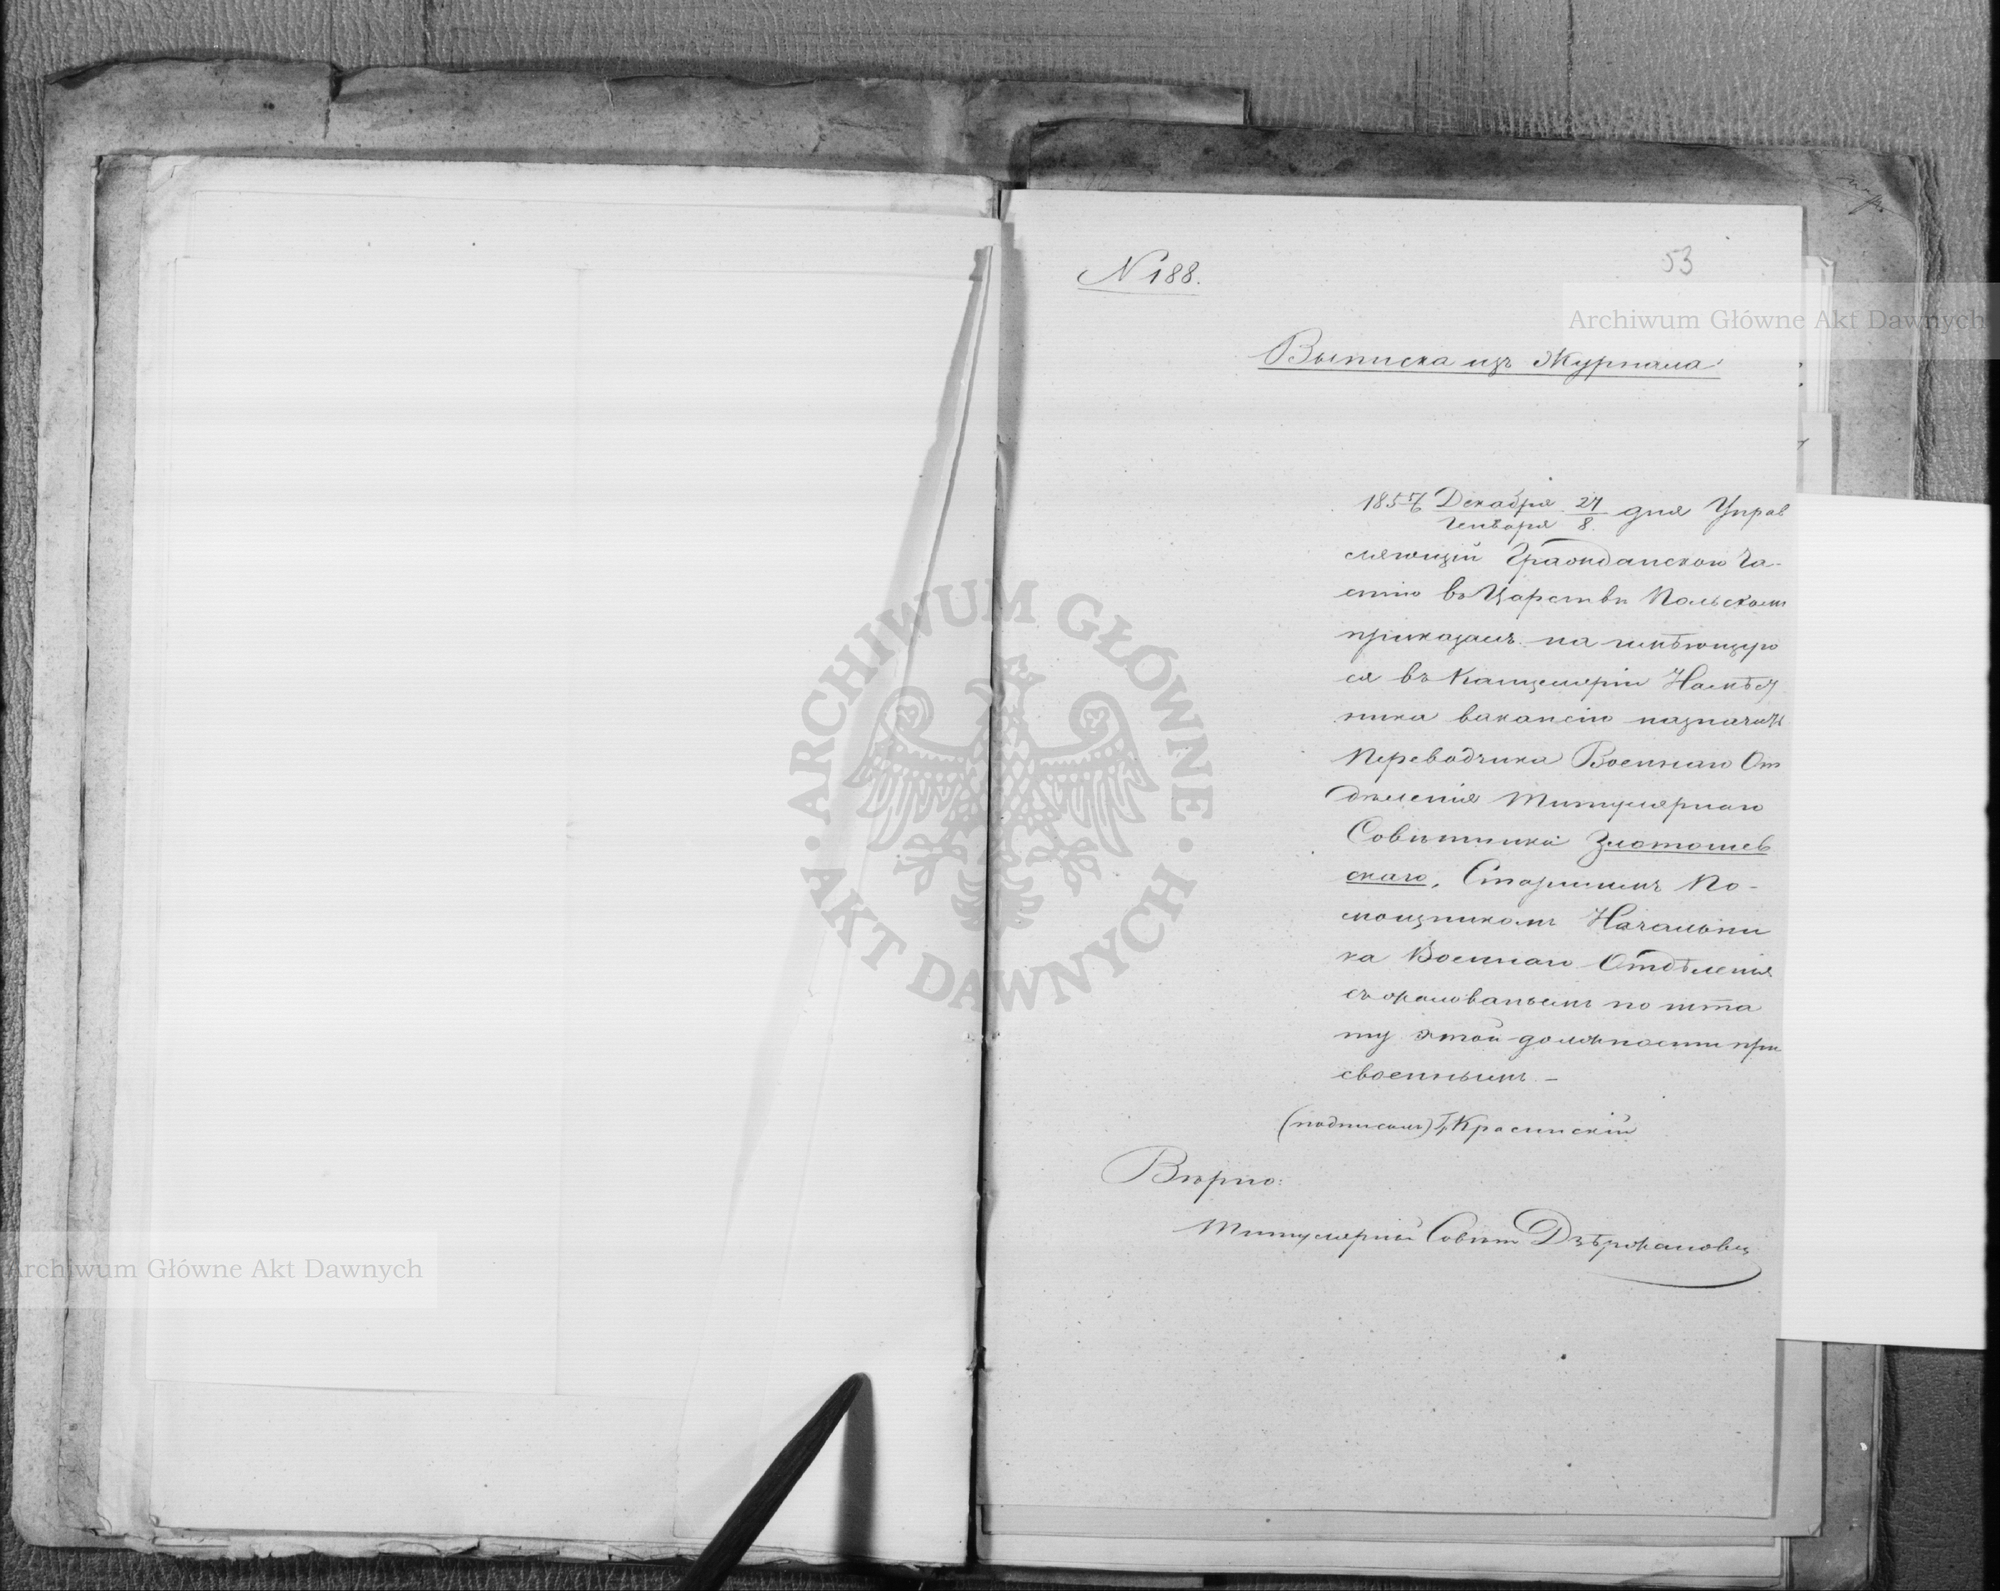 N 188.
53
Выписка изъ Журнала
185 6/7 Декабря/Генваря 27/8. дня Управ
ляющій Гражданскою Ча-
стію въ Царствѣ Польскомъ
приказалъ на имѣющуюю
ся въ Канцеляріи Намѣст
ника вакансію назначить
Переводчика Военнаго От
дѣленія Титулярнаго
Совѣтника Злотошев
скаго, Старшимъ По-
мощникомъ Начальни
ка Военнаго Отдѣленія
съ жалованьемъ по шта
ту этой должности при
своеннымъ –
(подписалъ) Г. Красинскій
Вѣрно:
Титулярный Совѣт
Archiwum Główne Akt Dawnych
Archiwum Główne Akt Dawnych
ARCHIWUM GŁÓWNE · AKT DAWNYCH ·